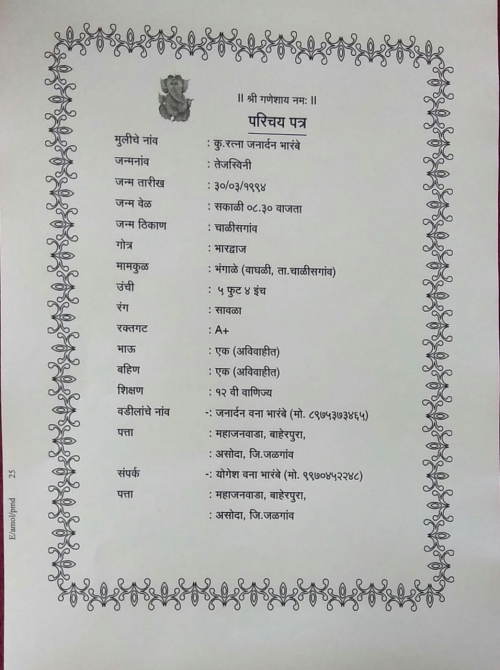 ॥ श्री गणेशाय नमः ॥
परिचय पत्र
मुलीचे नांव : कु.रत्ना जनार्दन भारंबे
जन्मनांव : तेजस्विनी
जन्म तारीख : ३०/०३/१९९४
जन्म वेळ : सकाळी ०८.३० वाजता
जन्म ठिकाण : चाळीसगांव
गोत्र : भारद्वाज
मामकुळ : भंगाळे (वाघळी, ता.चाळीसगांव)
उंची : ५ फुट ४ इंच
रंग : सावळा
रक्तगट : A+
भाऊ : एक (अविवाहीत)
बहिण : एक (अविवाहीत)
शिक्षण : १२ वी वाणिज्य
वडीलांचे नांव -: जनार्दन वना भारंबे (मो. ८९७५३७३४६५)
पत्ता : महाजनवाडा, बाहेरपुरा,
: असोदा, जि.जळगांव
संपर्क -: योगेश वना भारंबे (मो. ९९७०४५२२४८)
पत्ता : महाजनवाडा, बाहेरपुरा,
: असोदा, जि.जळगांव
E/amol/pmd 25